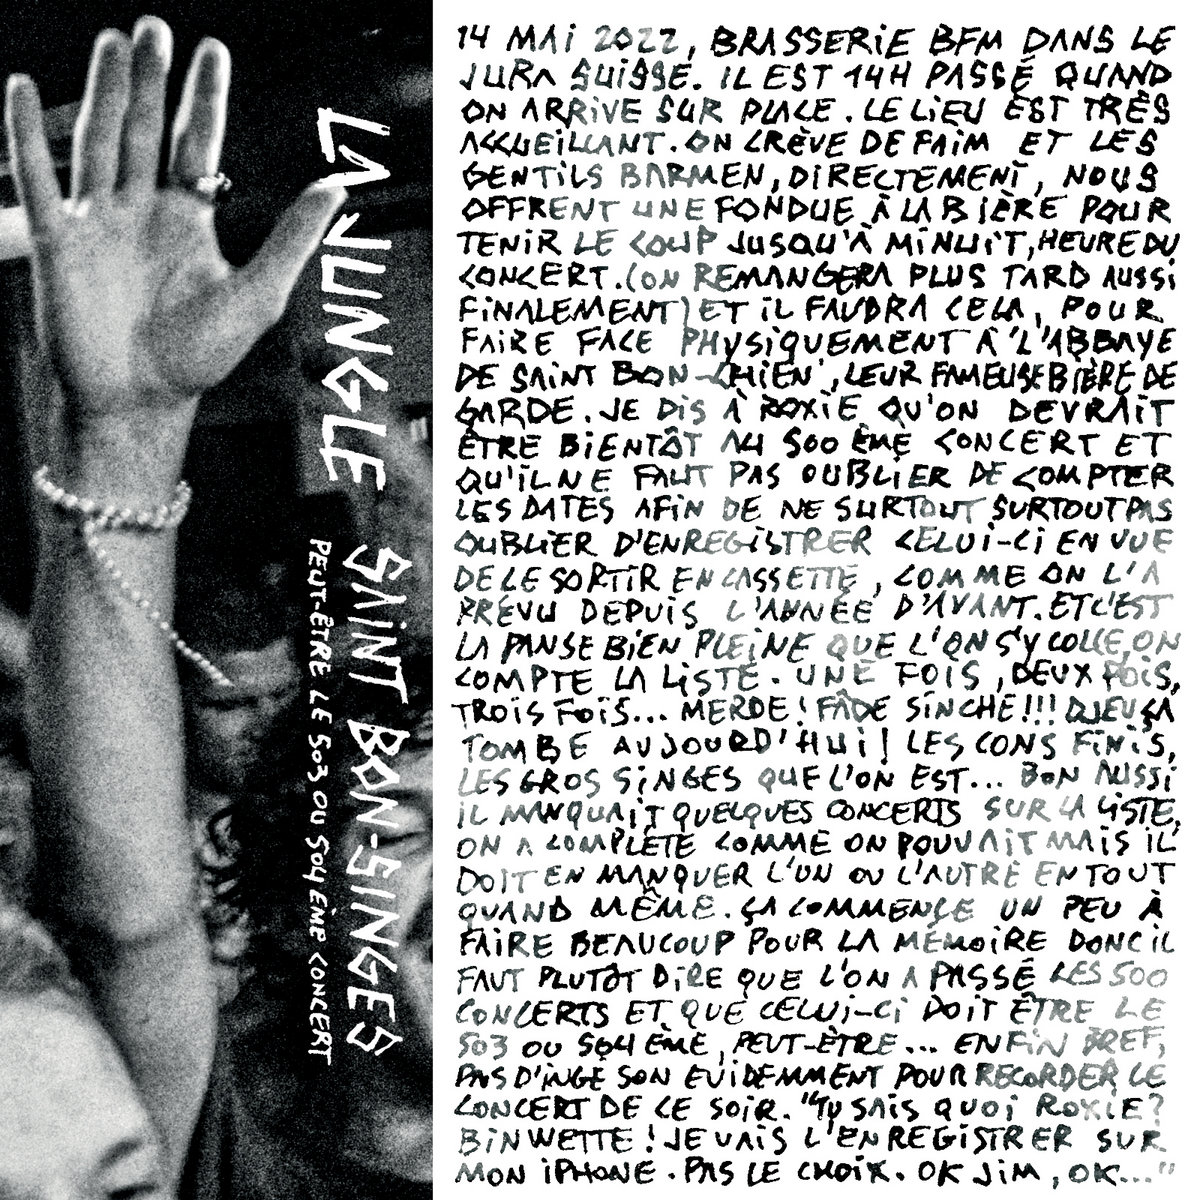 LA JUNGLE
SAINT BON-SINGES
PEUT-ÊTRE LE 503 OU 504 ÈME CONCERT
14 MAI 2022, BRASSERIE BFM DANS LE
JURA SUISSE. IL EST 14H PASSÉ QUAND
ON ARRIVE SUR PLACE. LE LIEU EST TRÈS
ACCUEILLANT. ON CRÈVE DE FAIM ET LES
GENTILS BARMEN, DIRECTEMENT, NOUS
OFFRENT UNE FONDUE À LA BIÈRE POUR
TENIR LE COUP JUSQU'À MINUIT, HEURE DU
CONCERT. (ON REMANGERA PLUS TARD AUSSI
FINALEMENT) ET IL FAUDRA CELA, POUR
FAIRE FACE PHYSIQUEMENT À 'L'ABBAYE
DE SAINT BON-CHIEN', LEUR FAMEUSE BIÈRE DE
GARDE. JE DIS À ROXIE QU'ON DEVRAIT
ÊTRE BIENTÔT AU 500 ÈME CONCERT ET
QU'IL NE FAUT PAS OUBLIER DE COMPTER
LES DATES AFIN DE NE SURTOUT SURTOUT PAS
OUBLIER D'ENREGISTRER CELUI-CI EN VUE
DE LE SORTIR EN CASSETTE, COMME ON L'A
PRÉVU DEPUIS L'ANNÉE D'AVANT. ET C'EST
LA PANSE BIEN PLEINE QUE L'ON S'Y COLLE, ON
COMPTE LA LISTE. UNE FOIS, DEUX FOIS,
TROIS FOIS... MERDE! FÂDE SINCHE!!! DJEU ÇA
TOMBE AUJOURD'HUI! LES CONS FINIS,
LES GROS SINGES QUE L'ON EST... BON AUSSI
IL MANQUAIT QUELQUES CONCERTS SUR LA LISTE,
ON A COMPLÉTÉ COMME ON POUVAIT MAIS IL
DOIT EN MANQUER L'UN OU L'AUTRE EN TOUT
QUAND MÊME. ÇA COMMENÇE UN PEU À
FAIRE BEAUCOUP POUR LA MÉMOIRE DONC IL
FAUT PLUTÔT DIRE QUE L'ON A PASSÉ LES 500
CONCERTS ET QUE CELUI-CI DOIT ÊTRE LE
503 OU 504 ÈME, PEUT-ÊTRE... ENFIN BREF,
PAS D'INGE SON EVIDEMMENT POUR RECORDER CE
CONCERT DE CE SOIR. "TU SAIS QUOI ROXIE?
BINWETTE! JE VAIS L'ENREGISTRER SUR
MON IPHONE. PAS LE CHOIX. OK JIM, OK..."